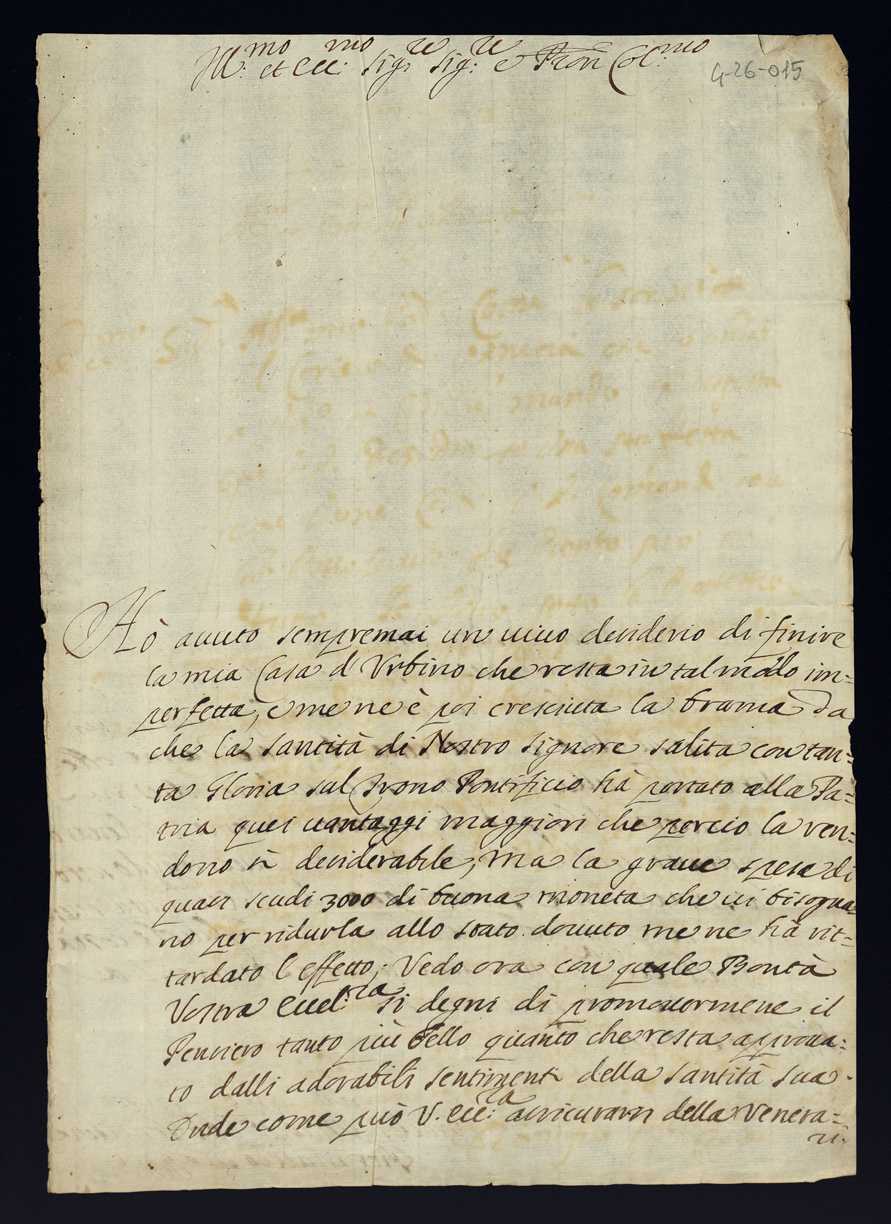 Ill.mo et Ecc.mo Sig.re Sig.re e Pron Col.mo
4-26-015
Hò auuto sempremai un uiuo desiderio di finire
la mia Casa d'Vrbino che resta in tal modo im=
perfetta, e me ne è poi cresciuta la brama da
che la Santità di Nostro Signore salita con tan=
ta Gloria sul Trono Pontificio hà portato alla Pa=
tria quei uantaggi maggiori che perciò la ren=
dono sì desiderabile, ma la graue spesa di
quasi scudi 3000 di buona moneta che ui bisogna
no per ridurla allo stato douuto me ne hà rit=
tardato l'effetto; Vedo ora con quale Bontà
Vostra Eccel:za si degni di promouermene il
Pensiero tanto più bello quanto che resta approua=
to dalli adorabili sentimenti della Santità Sua.
Onde come può V. Ecc:za assicurarsi della Venera=